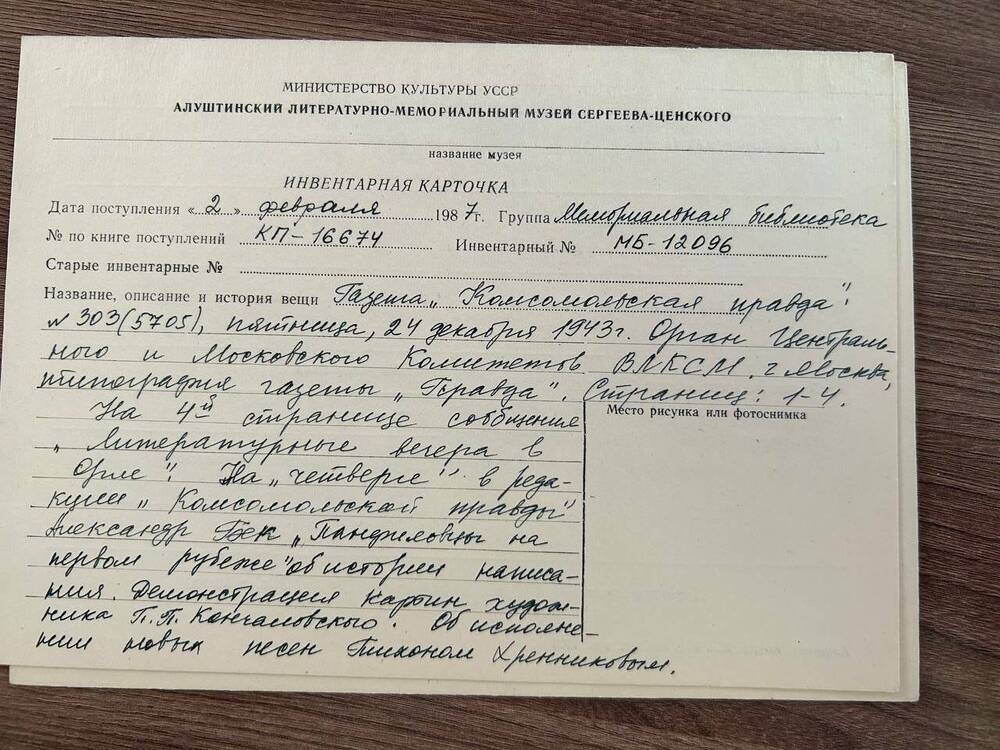 МИНИСТЕРСТВО КУЛЬТУРЫ УССР
АЛУШТИНСКИЙ ЛИТЕРАТУРНО-МЕМОРИАЛЬНЫЙ МУЗЕЙ СЕРГЕЕВА-ЦЕНСКОГО
название музея
ИНВЕНТАРНАЯ КАРТОЧКА
Дата поступления «2» февраля 1987г. Группа Мемориальная библиотека
№ по книге поступлений КП-16674 Инвентарный № МБ-12096
Старые инвентарные №
Название, описание и история вещи Газета „Комсомольская правда".
N 303(5705), пятница, 24 декабря 1943г. Орган Централь-
ного и Московского Комитетов ВЛКСМ. г. Москва,
типография газеты „Правда". Страниц: 1-4.
Место рисунка или фотоснимка
На 4й странице сообщение
„Литературные вечера в
Орле". На „четверге" в реда-
кции „Комсомольской правды"
Александр Бек „Панфиловцы на
первом рубеже" об истории написа-
ния. Демонстрация картин худож-
ника П.П. Кончаловского. Об исполне-
нии новых песен Тихоном Хренниковым.